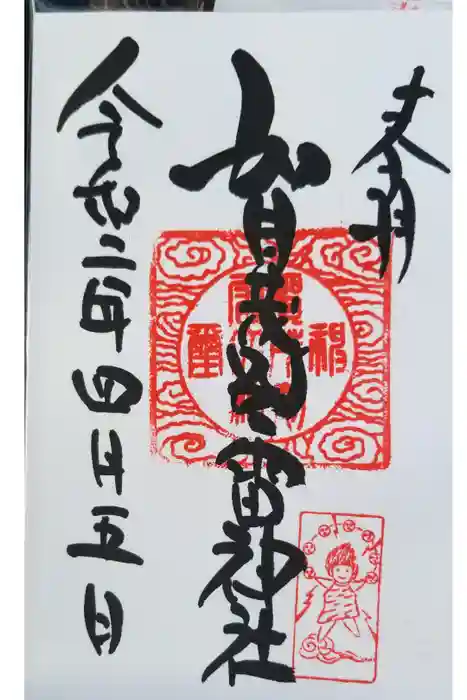 奉拝
賀茂別雷神社
令和二年四月五日